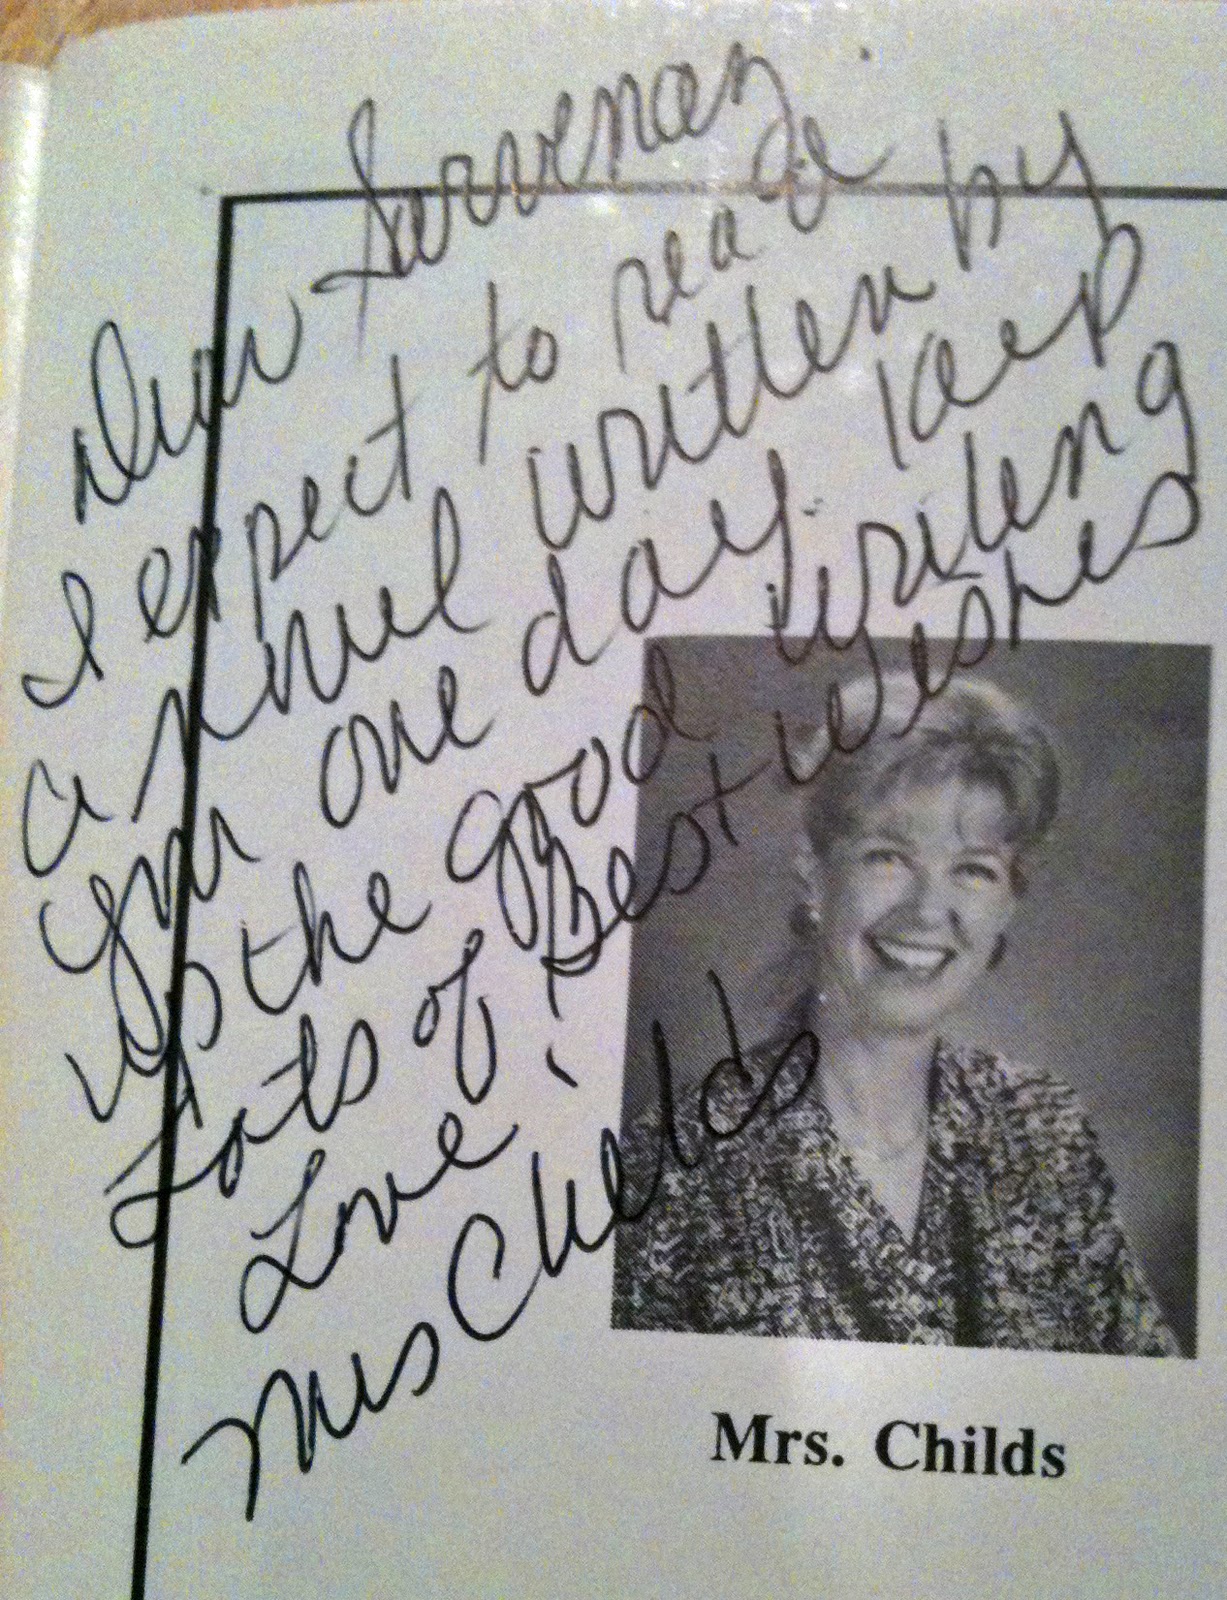 Dear Sarvenaz.
I expect to read
a novel written by
you one day. Keep
up the good writing
Lots of Best wishes
Love,
Mrs Childs
Mrs. Childs